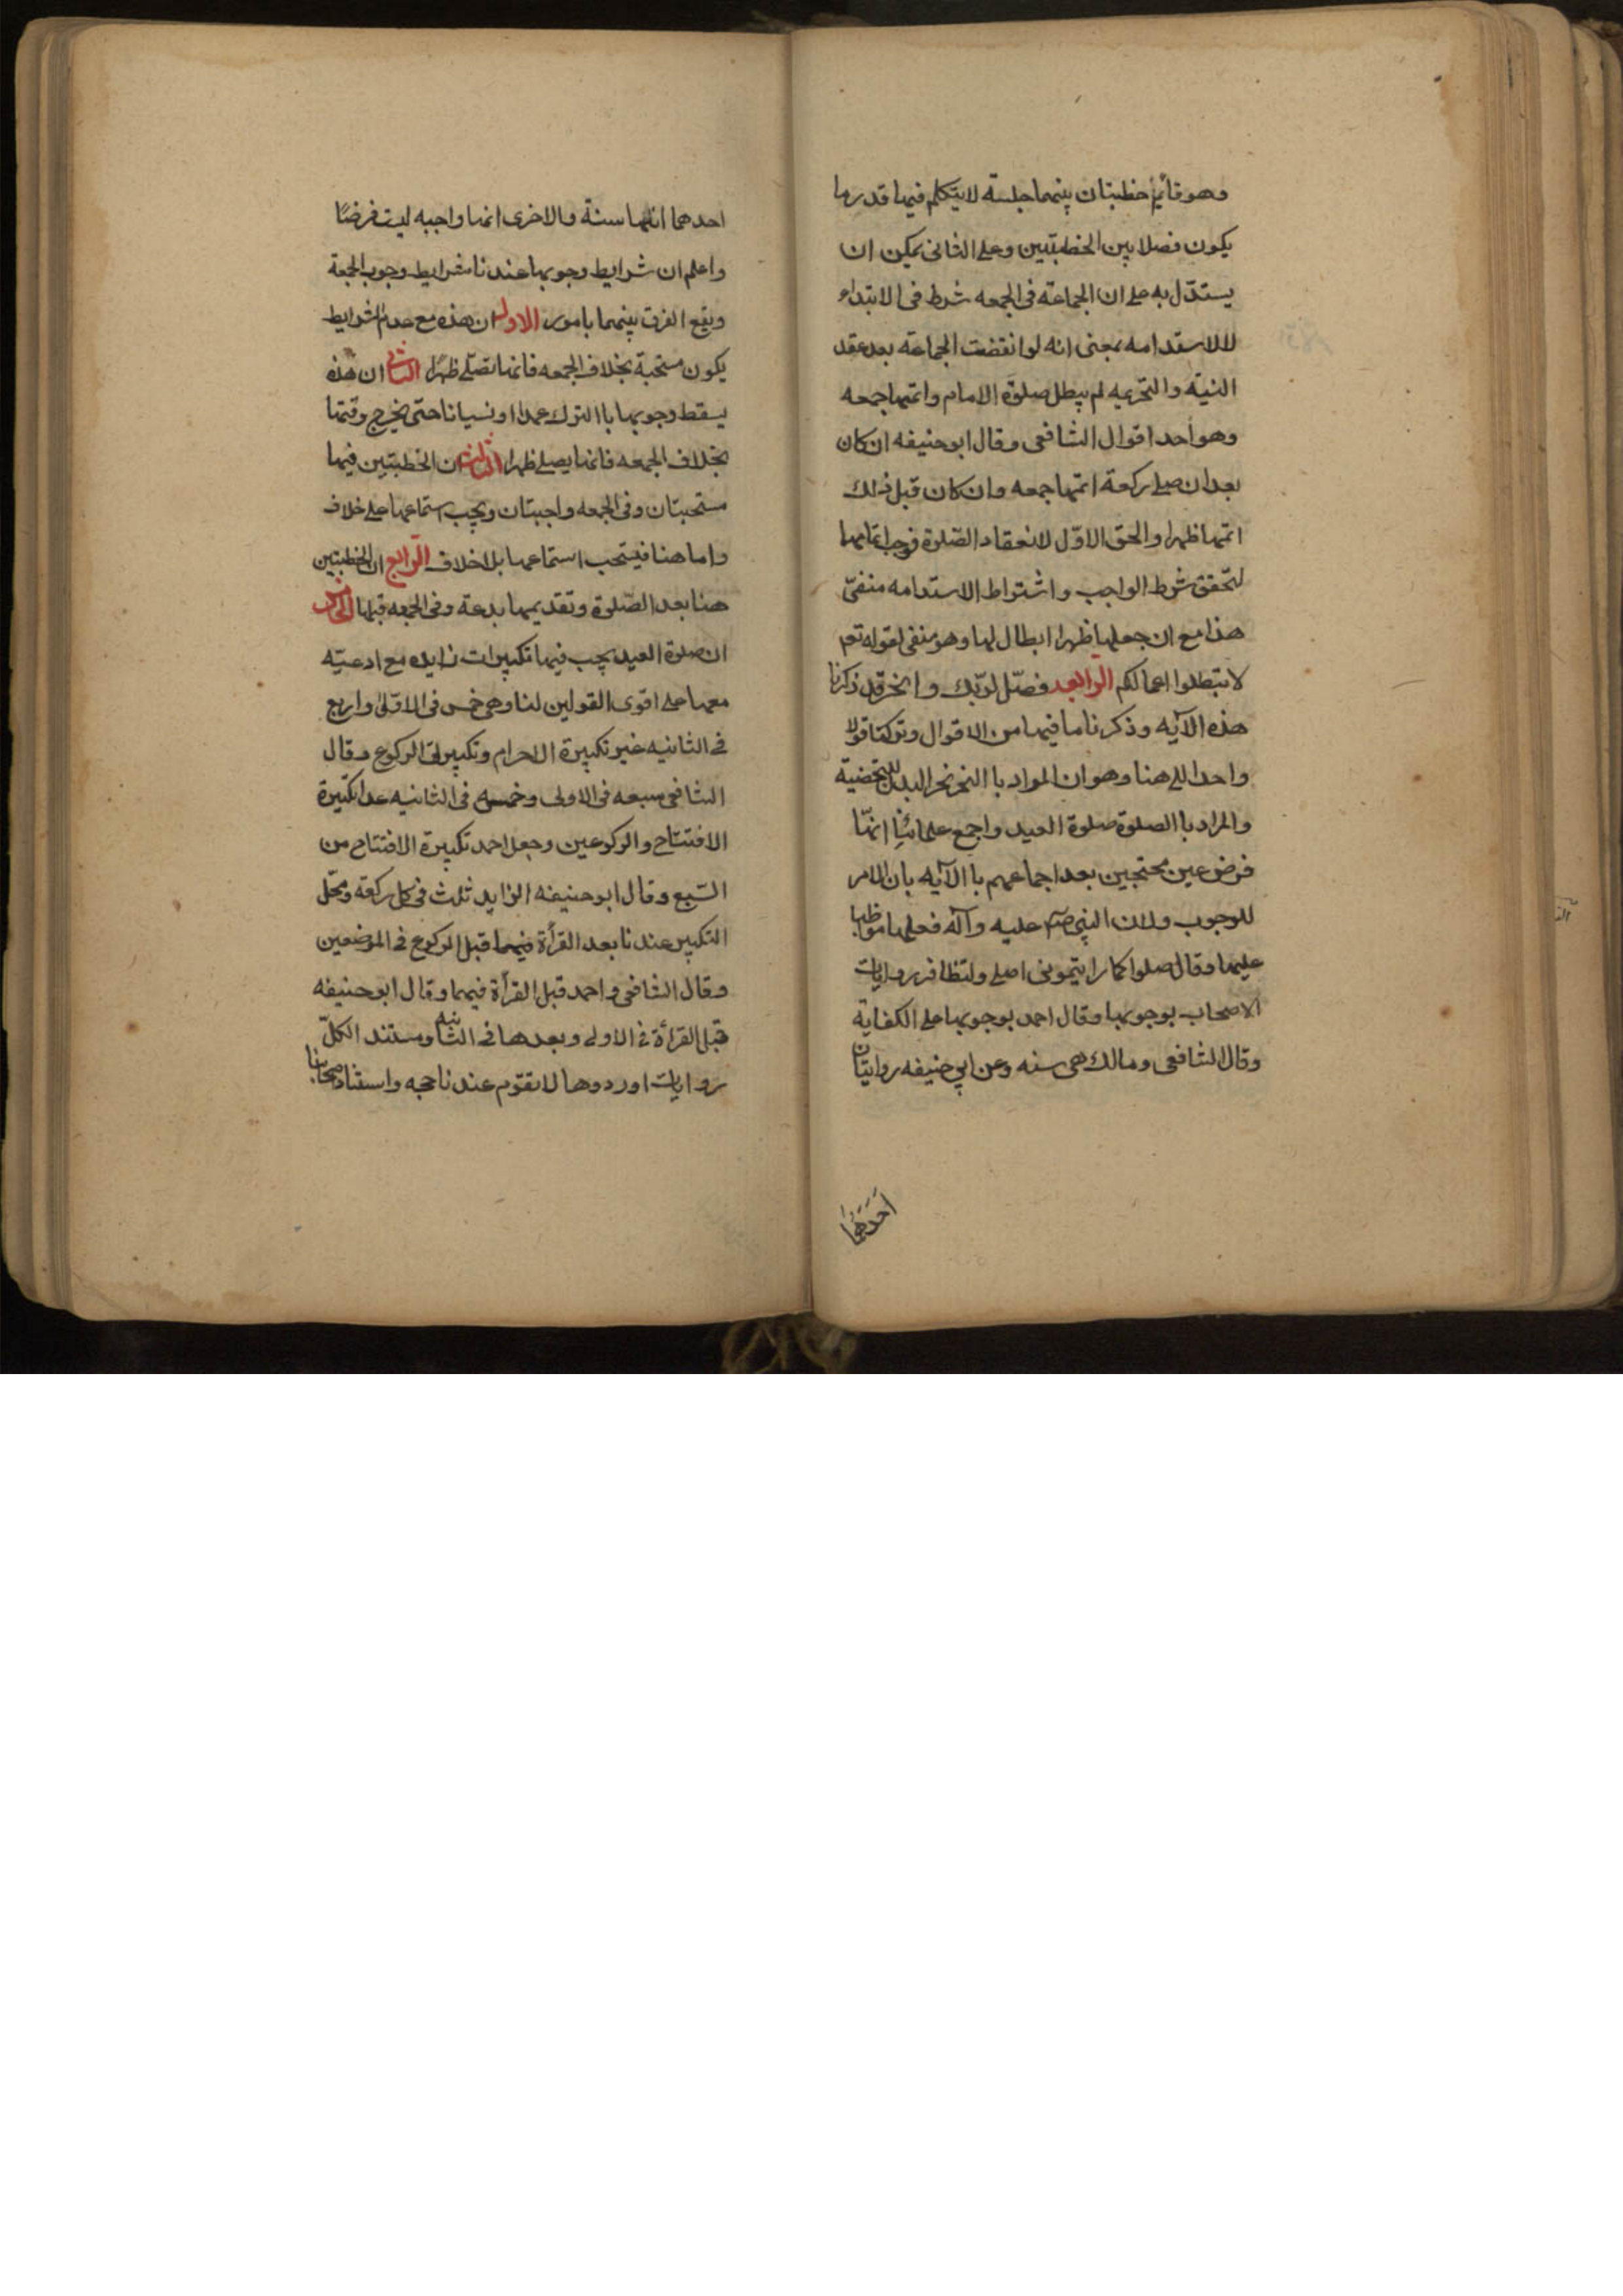 وهو قائم خطبتان بينهما جلسة لايتكلم فيها قدر ما
يكون فصلا بين الخطبتين وعلى الثانى يمكن ان
يستدل به على ان الجماعة فى الجمعه شرط فى الابتداء
لا للاستدامه بمعنى انه لو انفضت الجماعة بعد عقد
النية والتحريمه لم يبطل صلوة الامام واتمها جمعه
وهو احد اقوال الشافعى وقال ابو حنيفه ان كان
بعد ان صلى ركعة اتمها جمعه وان كان قبل ذلك
اتمها ظهرا والحق الاوّل لانعقاد الصّلوة فوجب اتمامها
لتحقق شرط الواجب واشتراط الاستدامه منفىّ
هذا مع ان جعلها ظهرا ابطال لها وهو منفى لقوله تعم
لا تبطلوا اعمالكم الرابعه فصّل لربّك وانحر قد ذكرنا
هذه الآيه وذكرنا ما فيها من الاقوال وتركنا قولا
واحدا الى هنا وهو ان المراد با النحر نحر البدن للتضحية
والمراد با الصلوة صلوة العيد واجمع علمائنا انها
فرض عين محتجين بعد اجماعهم با الآيه بان الامر
للوجوب ولان النبى صلم عليه وآله فعلها مواظبا
عليها وقال صلوا كما رايتمونى اصلى ولتظافر روايات
الاصحاب بوجوبها وقال احمد بوجوبها على الكفاية
وقال الشافعى ومالك هى سنه وعن ابى حنيفه روايتان
احدهما
احدهما انها سنة والاخرى انها واجبه ليت فرضًا
واعلم ان شرايط وجوبها عندنا شرايط وجوب الجمعة
ويقع الفرق بينهما بامور الاول ان هذه مع عدم الشرايط
يكون مستحبة بخلاف الجمعه فانها تصلى ظهرًا الثانى ان هذه
يسقط وجوبها با الترك عمدا او نسيانا حتى يخرج وقتها
بخلاف الجمعه فانها يصلى ظهرا الثالث ان الخطبتين فيها
مستحبتان وفى الجمعه واجبتان ويجب استماعها على خلاف
واما هنا فيستحب استماعها بلا خلاف الرّابع ان الخطبتين
هنا بعد الصّلوة وتقديمها بدعة وفى الجمعه قبلها الخامس
ان صلوة العيد يجب فيها تكبيرات زايده مع ادعيته
معها على اقوى القولين لنا وهى خمس فى الاولى واربع
فى الثانيه غير تكبيرة الاحرام وتكبيرتى الركوع وقال
الشافعى سبعه فى الاولى وخمسه فى الثانيه عدا تكبيرة
الافتتاح والركوعين وجعل احمد تكبيرة الافتتاح من
السّبع وقال ابو حنيفه الزايد ثلث فى كل ركعة ومحّل
التكبير عندنا بعد القرأة فيهما قبل الركوع فى الموضعين
وقال الشافعى واحمد قبل القرأة فيهما وقال ابو حنيفه
قبل القرأة فى الاولى وبعدها فى الثانيه ومستند الكلّ
روايات اوردوها لا تقوّم عندنا حجه واستناد اصحابنا